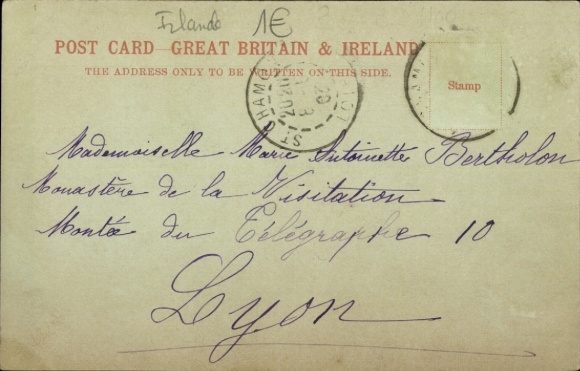 Irlande 1€
POST CARD—GREAT BRITAIN & IRELAND
THE ADDRESS ONLY TO BE WRITTEN ON THIS SIDE.
Stamp
ST CHAMOND
Mademoiselle Marie Antoinette Bertholon
Monastère de la Visitation
Montée du Télégraphe 10
Lyon